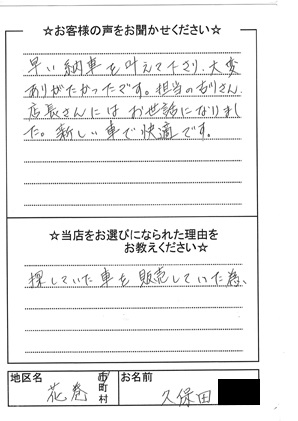 ☆お客様の声をお聞かせください☆
早い納車を叶えて下さり、大変
ありがたかったです。担当の古川さん、
店長さんにはお世話になりまし
た。新しい車で快適です。
☆当店をお選びになられた理由を
お教えください☆
探していた車を販売していた為、
地区名 花巻 市町村 お名前 久保田